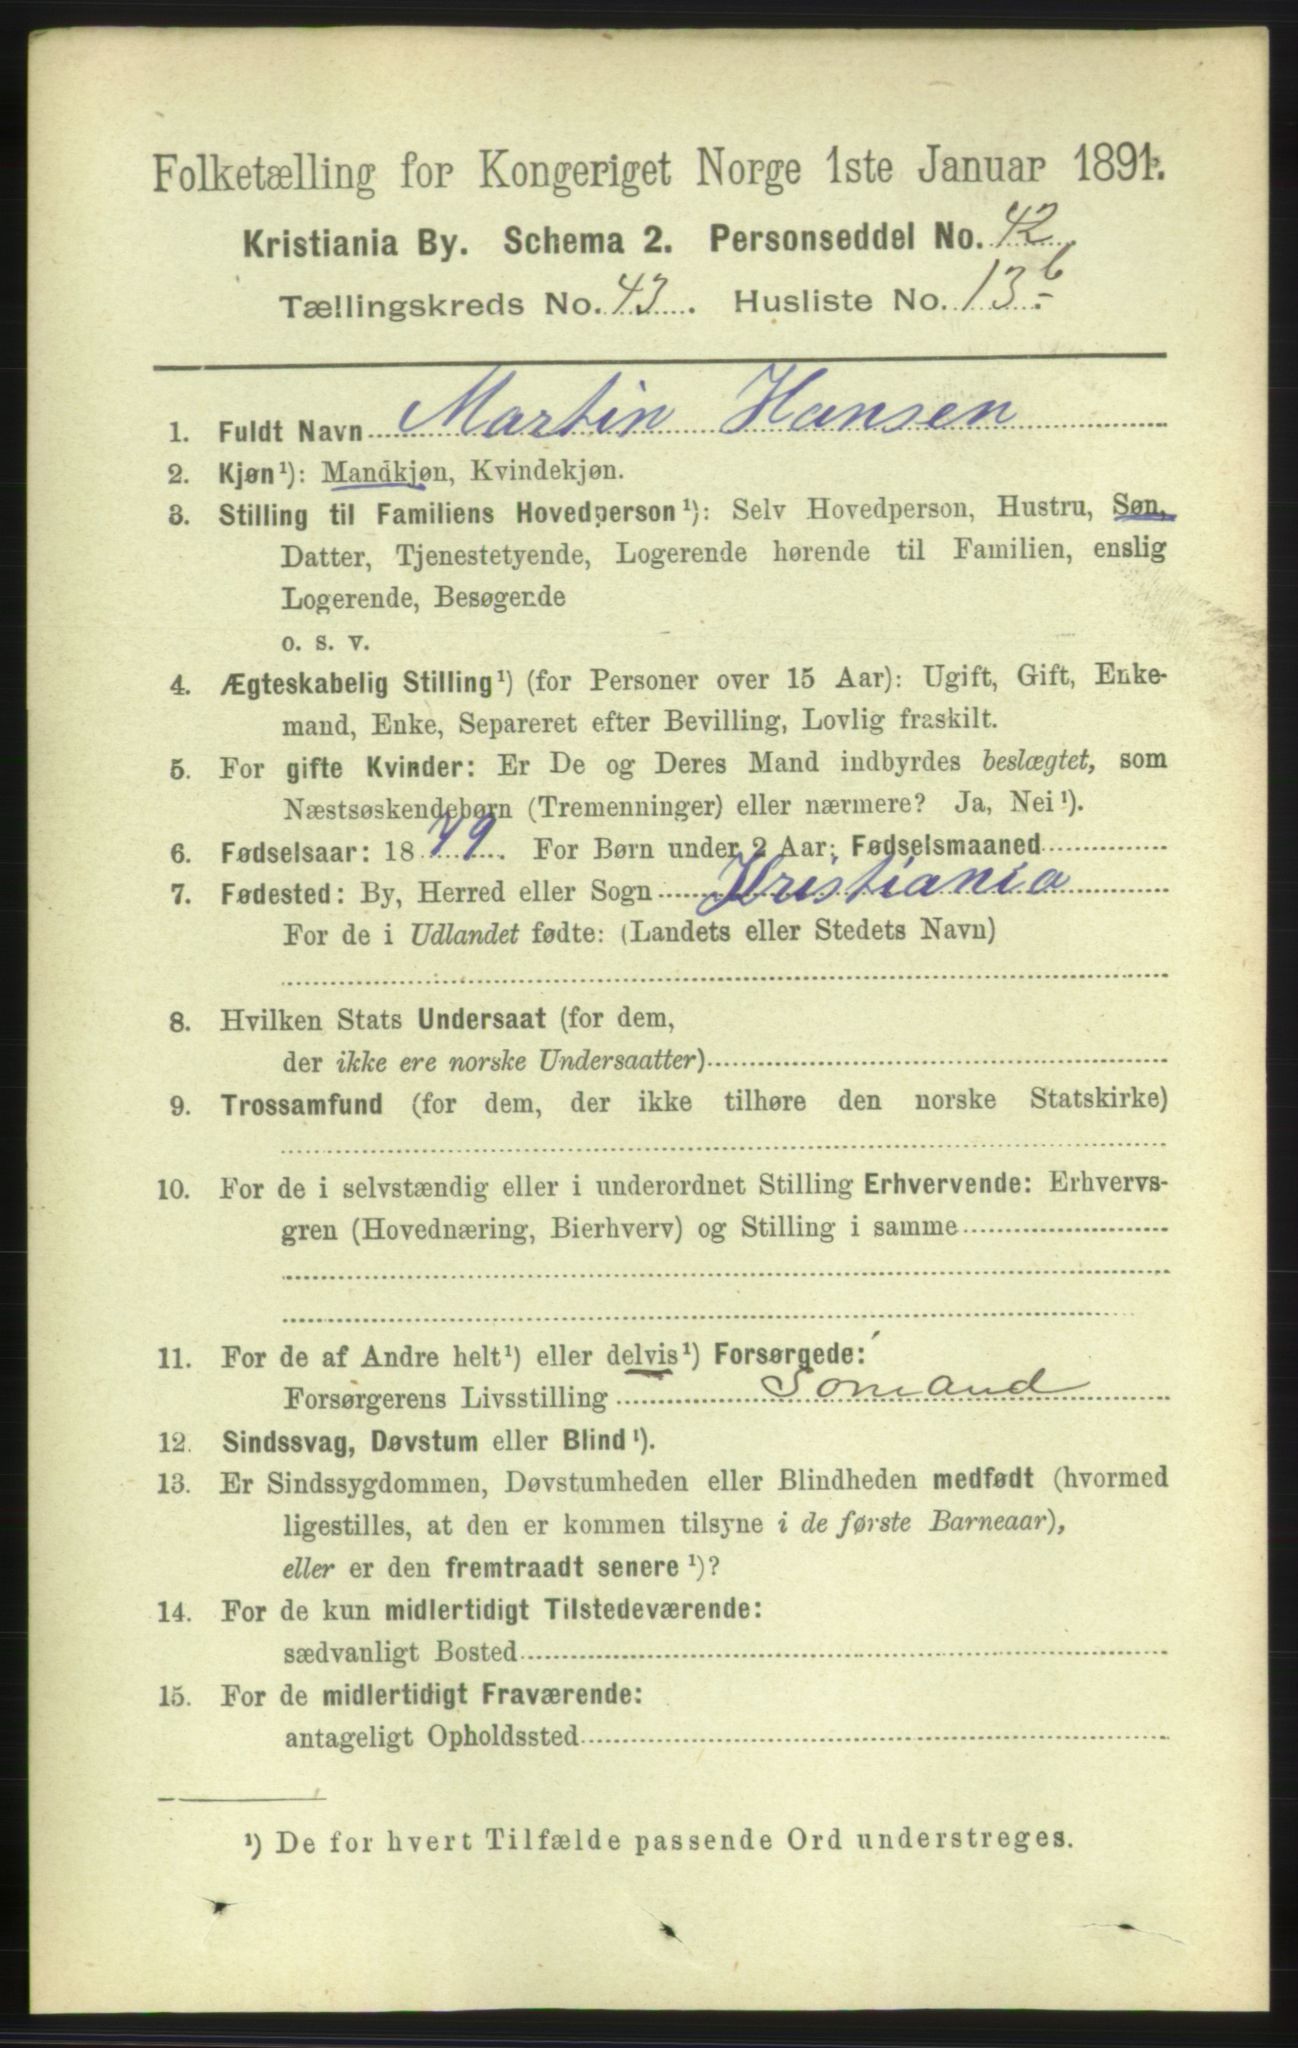 Folketælling for Kongeriget Norge 1ste Januar 1891.
Kristiania By. Schema 2. Personseddel No. 42
Tællingskreds No. 43. Husliste No. 13 b
1. Fuldt Navn Martin Hansen
2. Kjøn¹): Mandkjøn, Kvindekjøn.
3. Stilling til Familiens Hovedperson¹): Selv Hovedperson, Hustru, Søn,
Datter, Tjenestetyende, Logerende hørende til Familien, enslig
Logerende, Besøgende
o. s. v.
4. Ægteskabelig Stilling¹) (for Personer over 15 Aar): Ugift, Gift, Enke-
mand, Enke, Separeret efter Bevilling, Lovlig fraskilt.
5. For gifte Kvinder: Er De og Deres Mand indbyrdes beslægtet, som
Næstsøskendebørn (Tremenninger) eller nærmere? Ja, Nei¹).
6. Fødselsaar: 1879. For Børn under 2 Aar: Fødselsmaaned
7. Fødested: By, Herred eller Sogn Kristiania
For de i Udlandet fødte: (Landets eller Stedets Navn)
8. Hvilken Stats Undersaat (for dem,
der ikke ere norske Undersaatter)
9. Trossamfund (for dem, der ikke tilhøre den norske Statskirke)
10. For de i selvstændig eller i underordnet Stilling Erhvervende: Erhvervs-
gren (Hovednæring, Bierhverv) og Stilling i samme
11. For de af Andre helt¹) eller delvis¹) Forsørgede:
Forsørgerens Livsstilling Sømand
12. Sindssvag, Døvstum eller Blind¹).
13. Er Sindssygdommen, Døvstumheden eller Blindheden medfødt (hvormed
ligestilles, at den er kommen tilsyne i de første Barneaar),
eller er den fremtraadt senere¹)?
14. For de kun midlertidigt Tilstedeværende:
sædvanligt Bosted
15. For de midlertidigt Fraværende:
antageligt Opholdssted
¹) De for hvert Tilfælde passende Ord understreges.